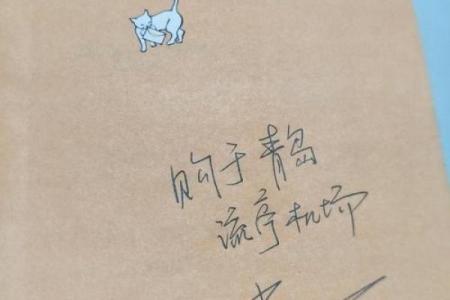 购于青岛
流亭机场